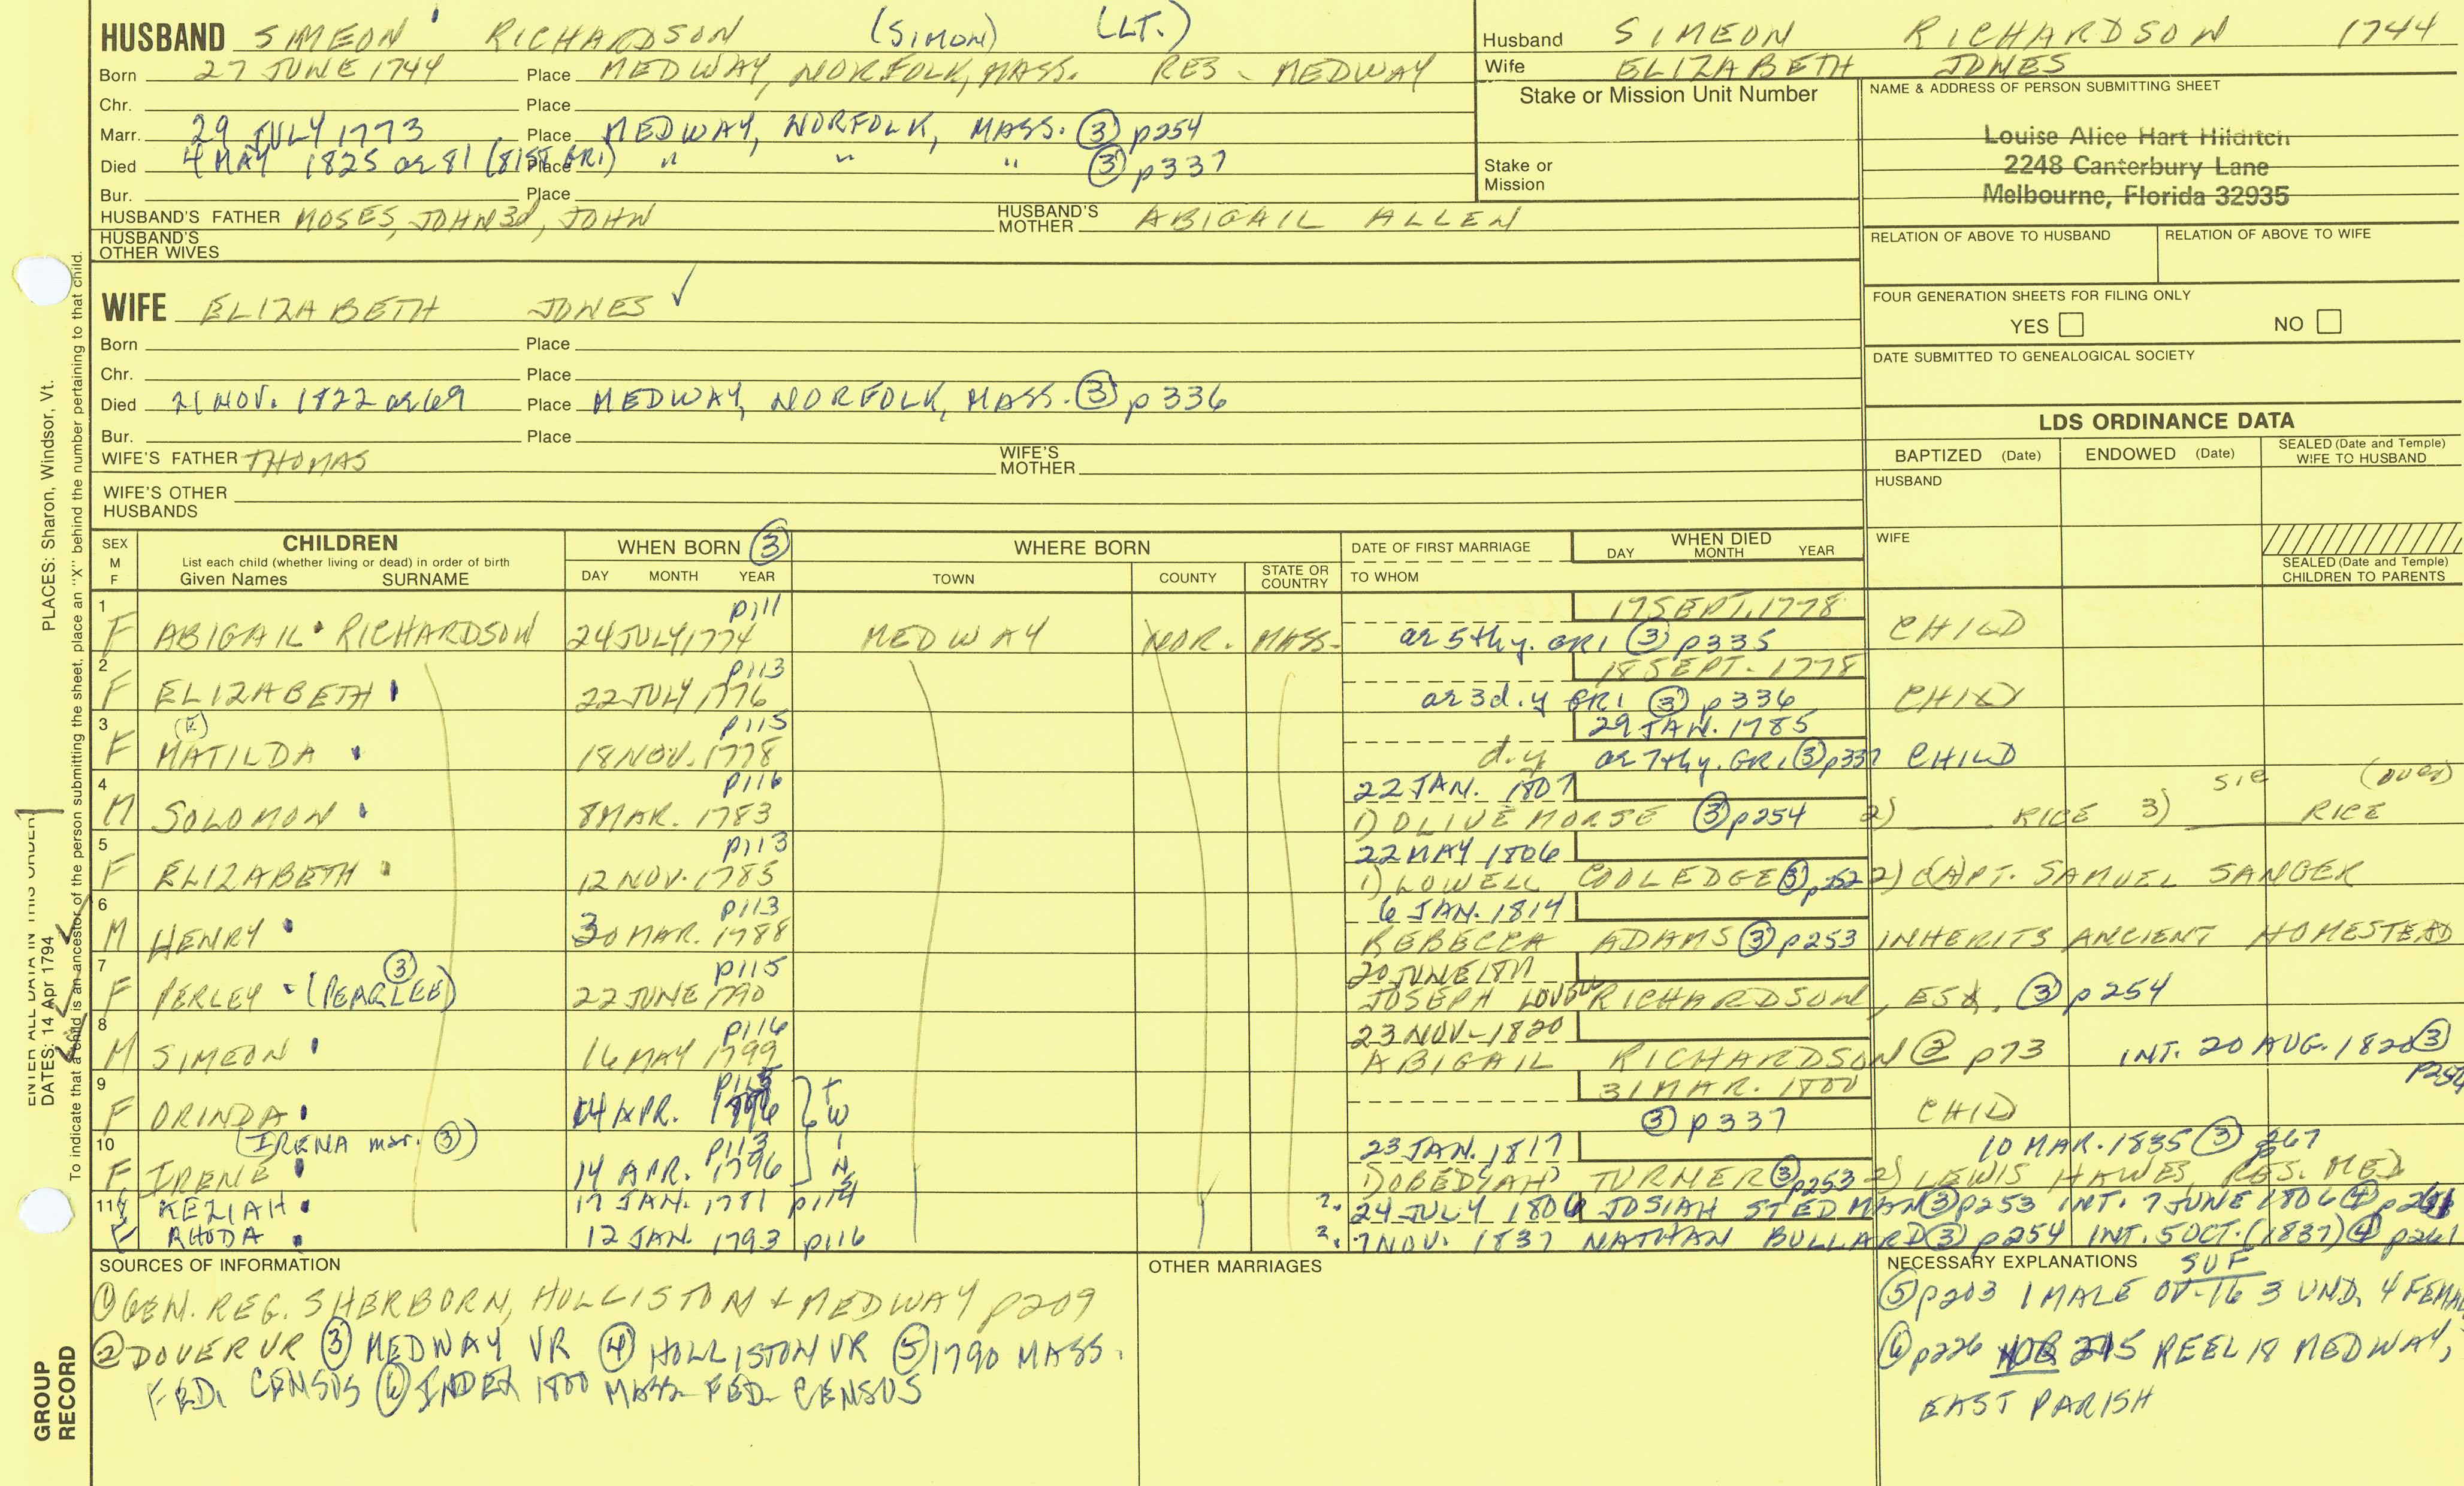 HUSBAND SIMEON RICHARDSON (SIMON) (LT.)
Born 27 JUNE 1744 Place MEDWAY, NORFOLK, MASS. RES - MEDWAY
Chr. Place
Marr. 29 JULY 1773 Place MEDWAY, NORFOLK, MASS. ③ p254
Died 4 MAY 1825 ae 81 (81ST GR1) Place " " " ③ p337
Bur. Place
HUSBAND'S FATHER MOSES, JOHN 3d, JOHN HUSBAND'S MOTHER ABIGAIL ALLEN
HUSBAND'S OTHER WIVES
Husband SIMEON RICHARDSON 1744
Wife ELIZABETH JONES
Stake or Mission Unit Number
Stake or Mission
NAME & ADDRESS OF PERSON SUBMITTING SHEET
Louise Alice Hart Hilditch
2248 Canterbury Lane
Melbourne, Florida 32935
RELATION OF ABOVE TO HUSBAND RELATION OF ABOVE TO WIFE
FOUR GENERATION SHEETS FOR FILING ONLY
YES NO
DATE SUBMITTED TO GENEALOGICAL SOCIETY
WIFE ELIZABETH JONES ✓
Born Place
Chr. Place
Died 21 NOV. 1822 ae 69 Place MEDWAY, NORFOLK, MASS. ③ p336
Bur. Place
WIFE'S FATHER THOMAS WIFE'S MOTHER
WIFE'S OTHER HUSBANDS
LDS ORDINANCE DATA
BAPTIZED (Date) ENDOWED (Date) SEALED (Date and Temple) WIFE TO HUSBAND
HUSBAND
WIFE
SEALED (Date and Temple) CHILDREN TO PARENTS
SEX M F
CHILDREN
List each child (whether living or dead) in order of birth
Given Names SURNAME
WHEN BORN ③
DAY MONTH YEAR
WHERE BORN
TOWN COUNTY STATE OR COUNTRY
DATE OF FIRST MARRIAGE
TO WHOM
WHEN DIED
DAY MONTH YEAR
1 p111 17 SEPT. 1778
F ABIGAIL RICHARDSON 24 JULY 1774 MEDWAY NOR. MASS. ae 5thy. GR1 ③ p335 CHILD
2 p113 18 SEPT. 1778
F ELIZABETH 22 JULY 1776 ae 3d.y GR1 ③ p336 CHILD
3 (E) p115 29 JAN. 1785
F MATILDA 18 NOV. 1778 d.y ae 7thy. GR1 ③ p337 CHILD
4 p116 22 JAN. 1807 sie (over)
M SOLOMON 8 MAR. 1783 1) OLIVE MORSE ③ p254 2) ____ RICE 3) ____ RICE
5 p113 22 MAY 1806
F ELIZABETH 12 NOV. 1785 1) LOWELL COOLEDGE ③ p252 2) C(A)PT. SAMUEL SANGER
6 p113 6 JAN. 1814
M HENRY 30 MAR. 1788 REBECCA ADAMS ③ p253 INHERITS ANCIENT HOMESTEAD
7 ③ p115 20 JUNE 1811
F PERLEY (PEARLEE) 22 JUNE 1790 JOSEPH LOVELL RICHARDSON, ESQ. ③ p254
8 p116 23 NOV. 1820
M SIMEON 16 MAY 1799 ABIGAIL RICHARDSON ② p73 INT. 20 AUG. 1820 ③ p254
9 p115 31 MAR. 1800
F ORINDA 14 APR. 1796 TWIN ③ p337 CHILD
10 (IRENA mar. ③) p113 23 JAN. 1817 10 MAR. 1835 ③ p267
F IRENE 14 APR. 1796 1) OBED(IAH) TURNER ③ p253 2) LEWIS HAWES, RES. MED
11 F KEZIAH 17 JAN. 1781 p114 24 JULY 1806 JOSIAH STEDMAN ③ p253 INT. 7 JUNE 1806 ④
F RHODA 12 JAN. 1793 p116 7 NOV. 1837 NATHAN BULLARD ③ p254 INT. 5 OCT. (1837) ④ p261
SOURCES OF INFORMATION
① GEN. REG. SHERBORN, HOLLISTON & MEDWAY p209
② DOVER VR ③ MEDWAY VR ④ HOLLISTON VR ⑤ 1790 MASS.
FED. CENSUS ⑥ INDEX 1800 MASS FED. CENSUS
OTHER MARRIAGES
NECESSARY EXPLANATIONS SUF
⑤ p203 1 MALE OV-16 3 UND. 4 FEMALE
⑥ p226 215 REEL 18 MEDWAY,
EAST PARISH
PLACES: Sharon, Windsor, Vt.
To indicate that a child is an ancestor of the person submitting the sheet, place an "X" behind the number pertaining to that child.
ENTER ALL DATA IN THIS ORDER:
DATES: 14 Apr 1794
GROUP RECORD